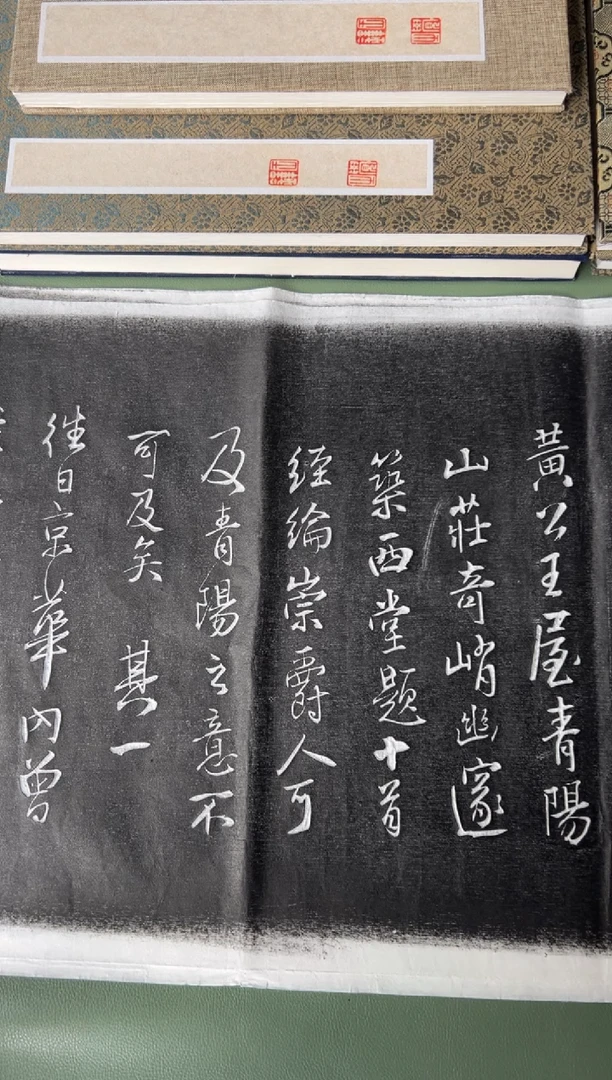 黃公王屋青陽
山莊奇峭幽邃
築西堂題十首
經綸崇爵人可
及青陽之意不
可及矣 其一
往日京華內曾